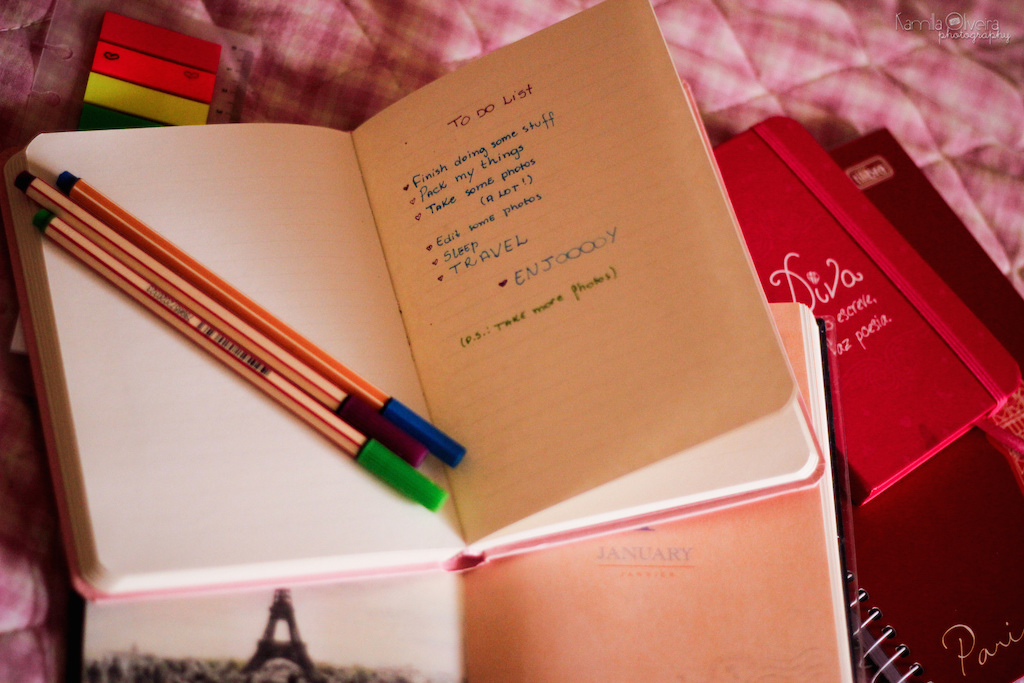 Kamilla Oliveira
photography
TO DO LIST
Finish doing some stuff
Pack my things
Take some photos
(A LOT!)
Edit some photos
SLEEP
TRAVEL
ENJOOOOY
(P.S.: TAKE more photos)
Diva
escreve,
faz poesia.
JANUARY
JANVIER